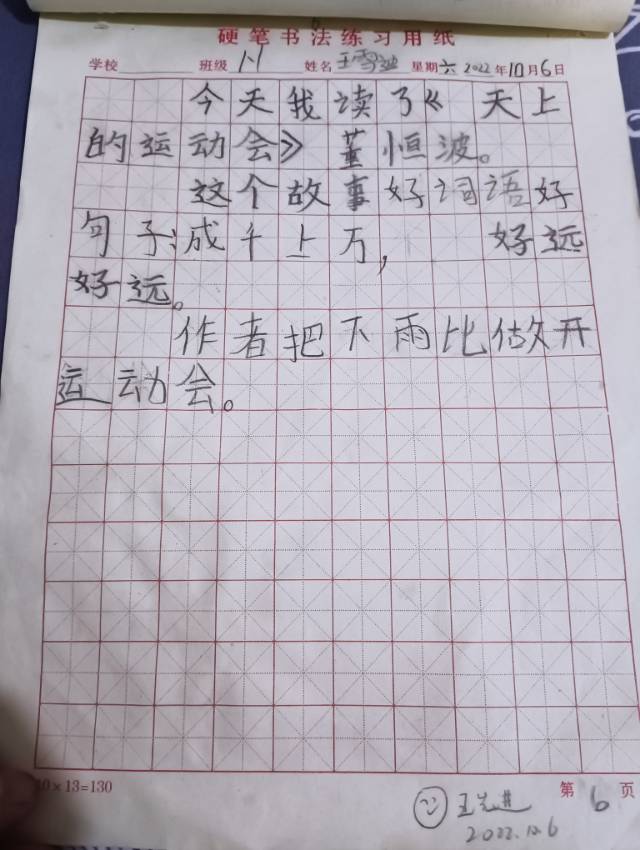 硬笔书法练习用纸
学校 班级 姓名 星期六 2022年10月6日
今天我读了《 天上
的运动会》 董恒波。
这个故事好词语好
句子:成千上万, 好远
好远。
作者把下雨比做开
运动会。
10×13=130
第6页
2022.10.6